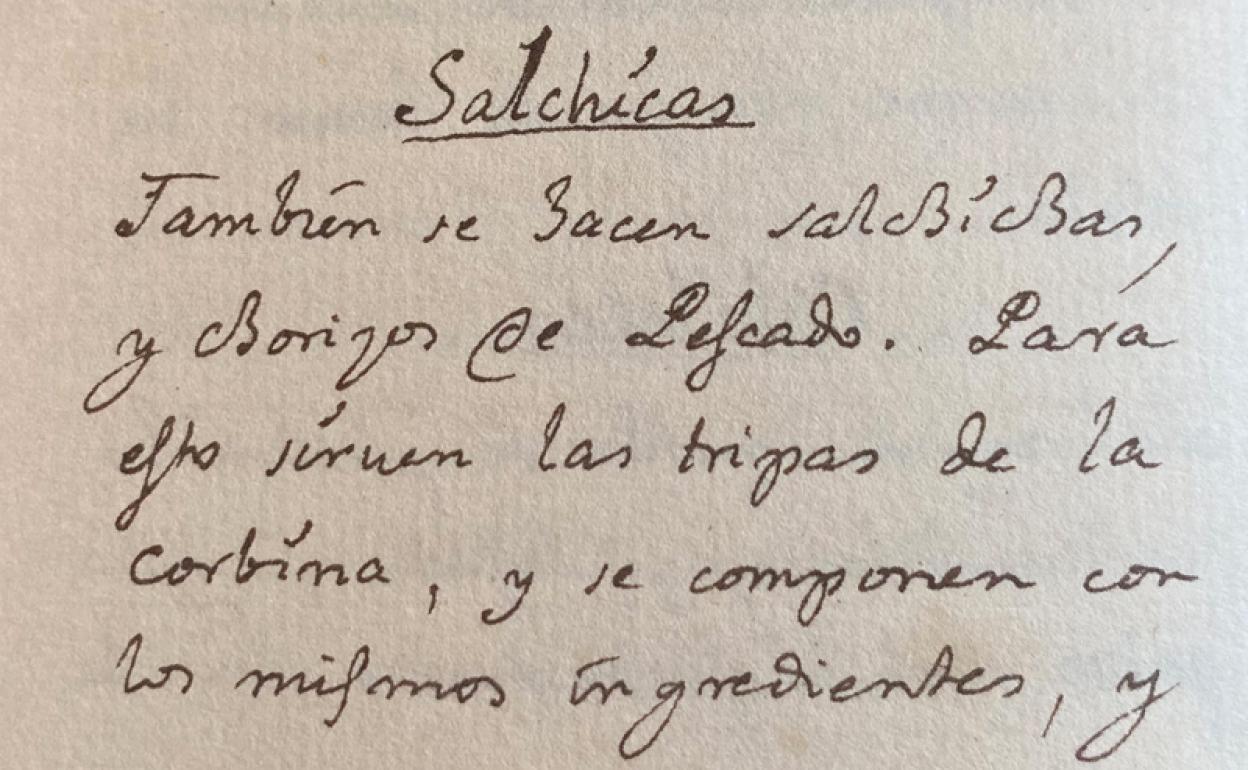 Salchicas
También se hacen salchichas,
y chorizos de Pescado. Para
esto siruen las tripas de la
corbina, y se componen con
los mismos ingredientes, y